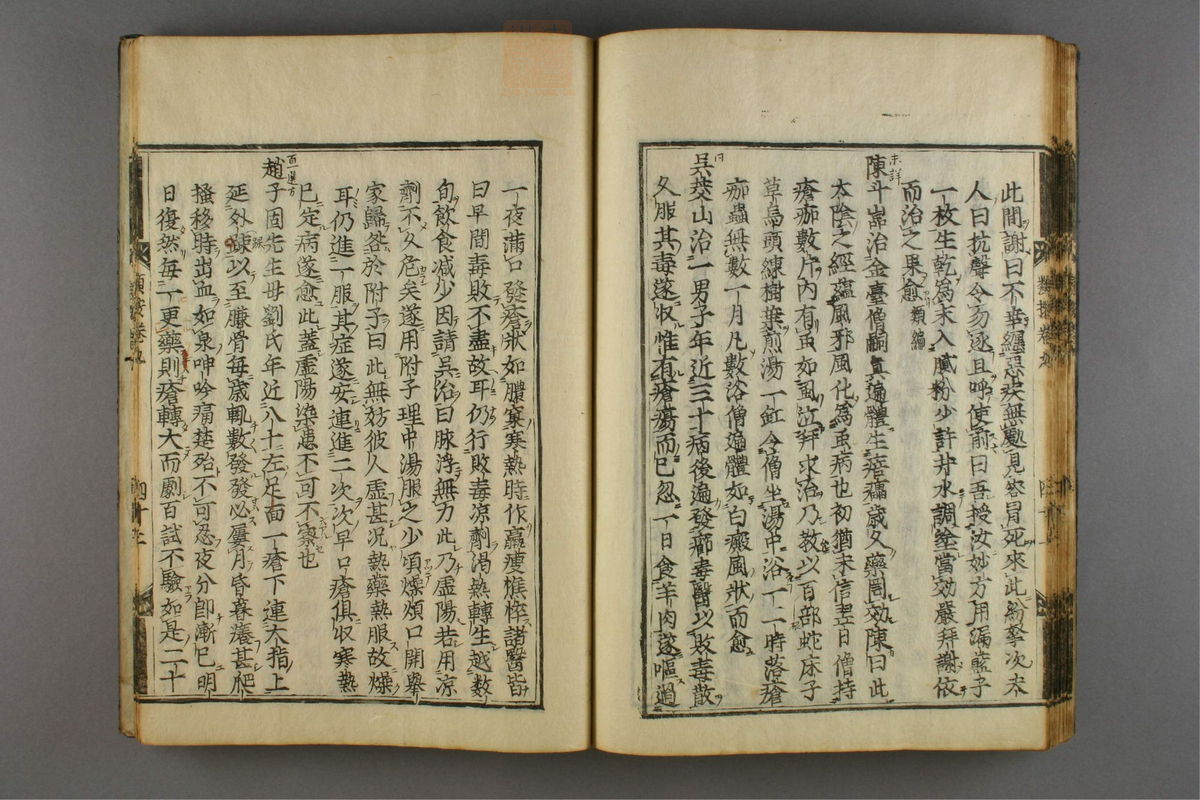 此間謝曰不幸纏惡疾無處見容冒死來此紛拏次
人曰抗聲令勿逐且呼使前曰吾授汝妙方用漏藍子
一枚生乾為末入膩粉少許井水調塗當効嚴拜謝依
而治之果愈 類編
未詳
陳斗嵓治金臺僧 遍體生瘡 歲久藥罔効陳曰此
太陰之經蘊風邪風化為虫病也初猶未信翌日僧持
瘡痂數片內有虫如虱 拜求治乃教以百部蛇床子
草烏頭練樹葉煎湯一缸令僧坐湯中浴一二時落瘡
痂蟲無數一月凡數浴僧遍體如白癜風狀而愈
同
吳茭山治一男子年近三十病後遍發 毒醫以敗毒散
久服其毒遂收惟有瘡瘍而已忽一日食羊肉遂嘔過
一夜滿口發瘡狀如膿窠寒熱時作羸瘦憔悴諸醫皆
曰早間毒敗不盡故耳仍行敗毒凉劑渴熱轉生越數
旬飲食减少因請吳治曰脉浮無力此乃虛陽若用凉
劑不久危矣遂用附子理中湯服之少頃燥煩口開舉
家歸咎於附子曰此無妨彼久虛甚况熱藥熱服故燥
耳仍進一服其症遂安連進二次次早口瘡俱收寒熱
已定病遂愈此蓋虛陽染患不可不察也
百一選方
趙子固先生母劉氏年近八十左足面一瘡下連大指上
延外 以至臁骨每歲輒數發發必屢月昏 癢甚爬
搔移時出血如泉呻吟痛楚殆不可忍夜分即漸已明
日復然每一更藥則瘡轉大而劇百試不驗如是二十